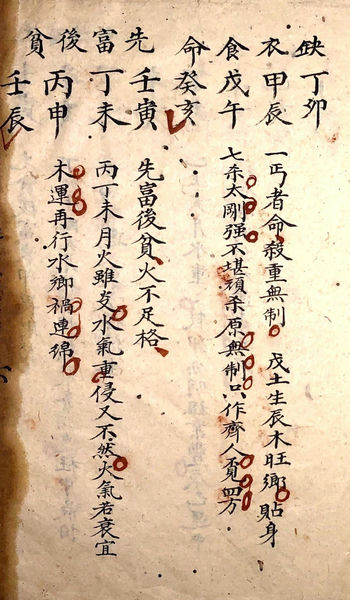 缺衣食命
丁卯
甲辰
戊午
癸亥
一丐者命殺重無制 戊土生辰木旺鄉貼身
七杀太剛强不堪頑杀原無制只作齊人覓四方
先富後貧
壬寅
丁未
丙申
壬辰
先富後貧火不足格
丙丁未月火雖炎水氣重侵又不然火氣若衰宜
木運再行水鄉禍連綿